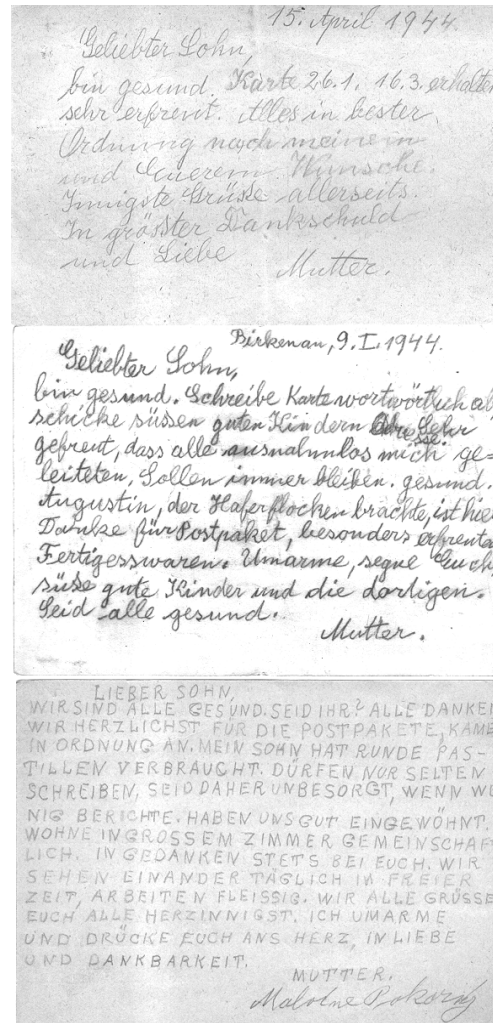 15. April 1944
Geliebter Sohn,
bin gesund. Karte 26.1. 16.3. erhalten
sehr erfreut. Alles in bester
Ordnung nach meinem
und Euerem Wunsche.
Innigste Grüsse allerseits.
In grösster Dankschuld
und Liebe
Mutter.
Birkenau, 9.I.1944.
Geliebter Sohn,
bin gesund. Schreibe Karte wortwörtlich ab,
schicke süssen guten Kindern Adresse. Sehr
gefreut, dass alle ausnahmlos mich ge=
leiteten. Sollen immer bleiben. gesund.
Augustin, der Haferflocken brachte, ist hier
Danke für Postpaket, besonders erfreuten
Fertigesswaren. Umarme, segne Euch
süsse gute Kinder und die dortigen.
Seid alle gesund.
Mutter.
LIEBER SOHN,
WIR SIND ALLE GESUND. SEID IHR? ALLE DANKEN
WIR HERZLICHST FÜR DIE POSTPAKETE, KAME
IN ORDNUNG AN. MEIN SOHN HAT RUNDE PAS-
TILLEN VERBRAUCHT. DÜRFEN NUR SELTEN
SCHREIBEN, SEID DAHER UNBESORGT, WENN WE
NIG BERICHTE. HABEN UNS GUT EINGEWÖHNT.
WOHNE IN GROSSEM ZIMMER GEMEINSCHAFT
LICH. IN GEDANKEN STETS BEI EUCH. WIR
SEHEN EINANDER TÄGLICH IN FREIER
ZEIT, ARBEITEN FLEISSIG. WIR ALLE GRÜSSE
EUCH ALLE HERZINNIGST. ICH UMARME
UND DRÜCKE EUCH ANS HERZ, IN LIEBE
UND DANKBARKEIT.
MUTTER.
Malvine Pokorny